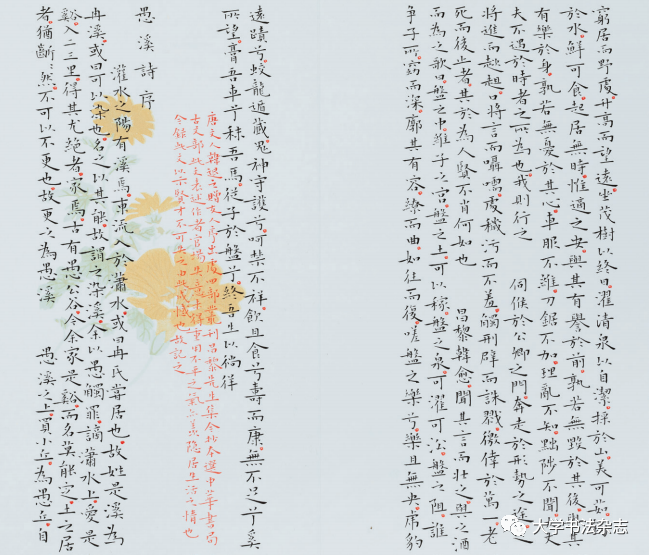 窮居而野處升高而望遠坐茂樹以終日濯清泉以自潔採於山美可茹
於水鮮可食起居無時惟適之安與其有譽於前孰若無毀於其後與其
有樂於身孰若無憂於其心車服不維刀鋸不加理亂不知黜陟不聞大丈
夫不遇於時者之所為也我則行之 伺候於公卿之門奔走於形勢之途足
將進而趑趄口將言而囁嚅處穢污而不羞觸刑辟而誅戮徼倖於萬一老
死而後止者其於為人賢不肖何如也 昌黎韓愈聞其言而壯之與之酒
而為之歌曰盤之中維子之宮盤之土可以稼盤之泉可濯可沿盤之阻誰
爭子所窈而深廓其有容繚而曲如往而復嗟盤之樂兮樂且無央虎豹
遠蹟兮蛟龍遁藏鬼神守護兮呵禁不祥飲且食兮壽而康無不足兮奚
所望膏吾車兮秣吾馬從子於盤兮終吾生以徜徉
唐文人韓退之贈友人序也
愚溪詩序
灌水之陽有溪焉東流入於瀟水或曰冉氏嘗居也故姓是溪為
冉溪或曰可以染也名之以其能故謂之染溪余以愚觸罪謫瀟水上愛是
谿入二三里得其尤絕者家焉古有愚公谷今余家是谿而名莫能定土之居
者猶齗齗然不可以不更也故更之為愚溪 愚溪之上買小丘為愚丘自
大学书法杂志